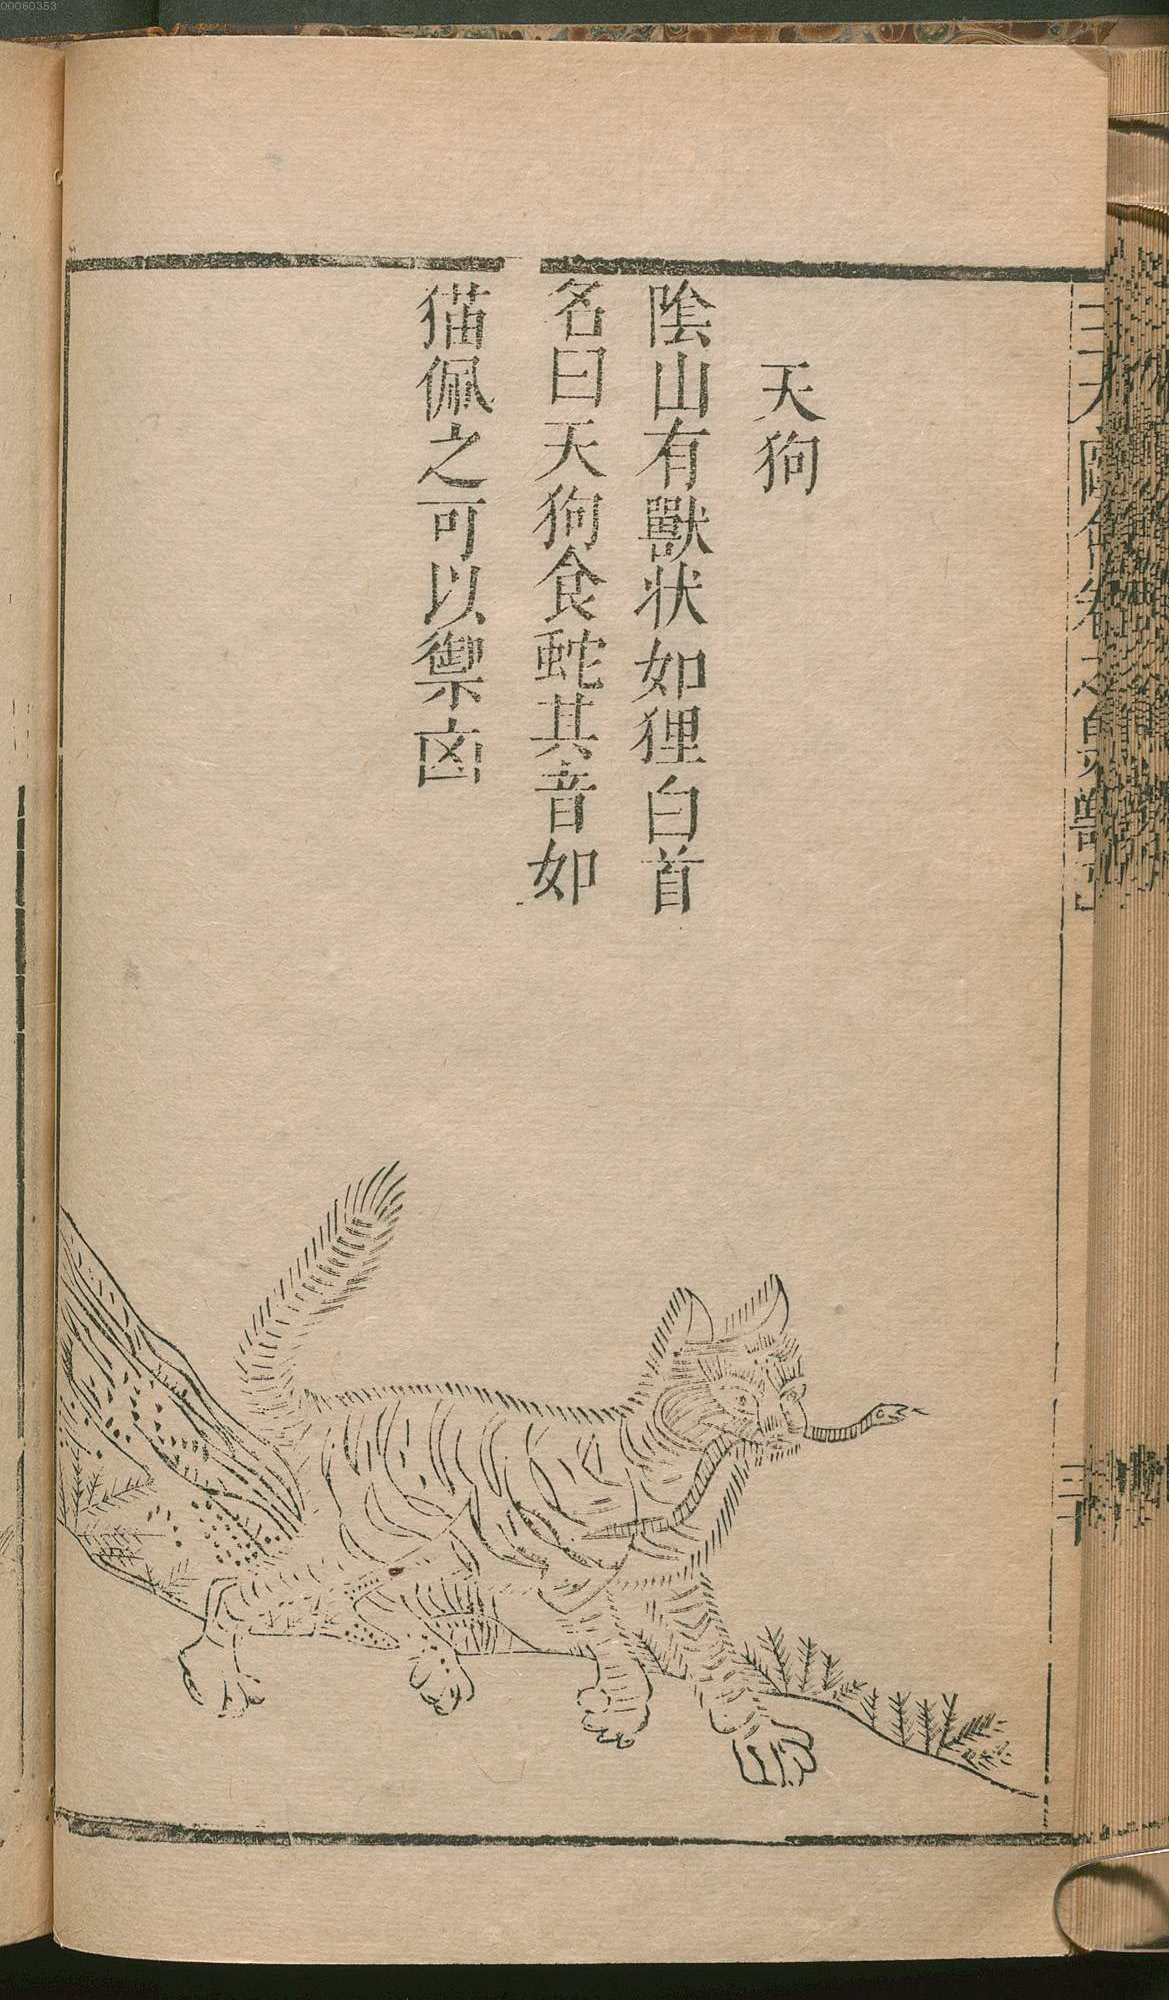 天狗
陰山有獸状如狸白首
名曰天狗食蛇其音如
猫佩之可以禦凶
00060353